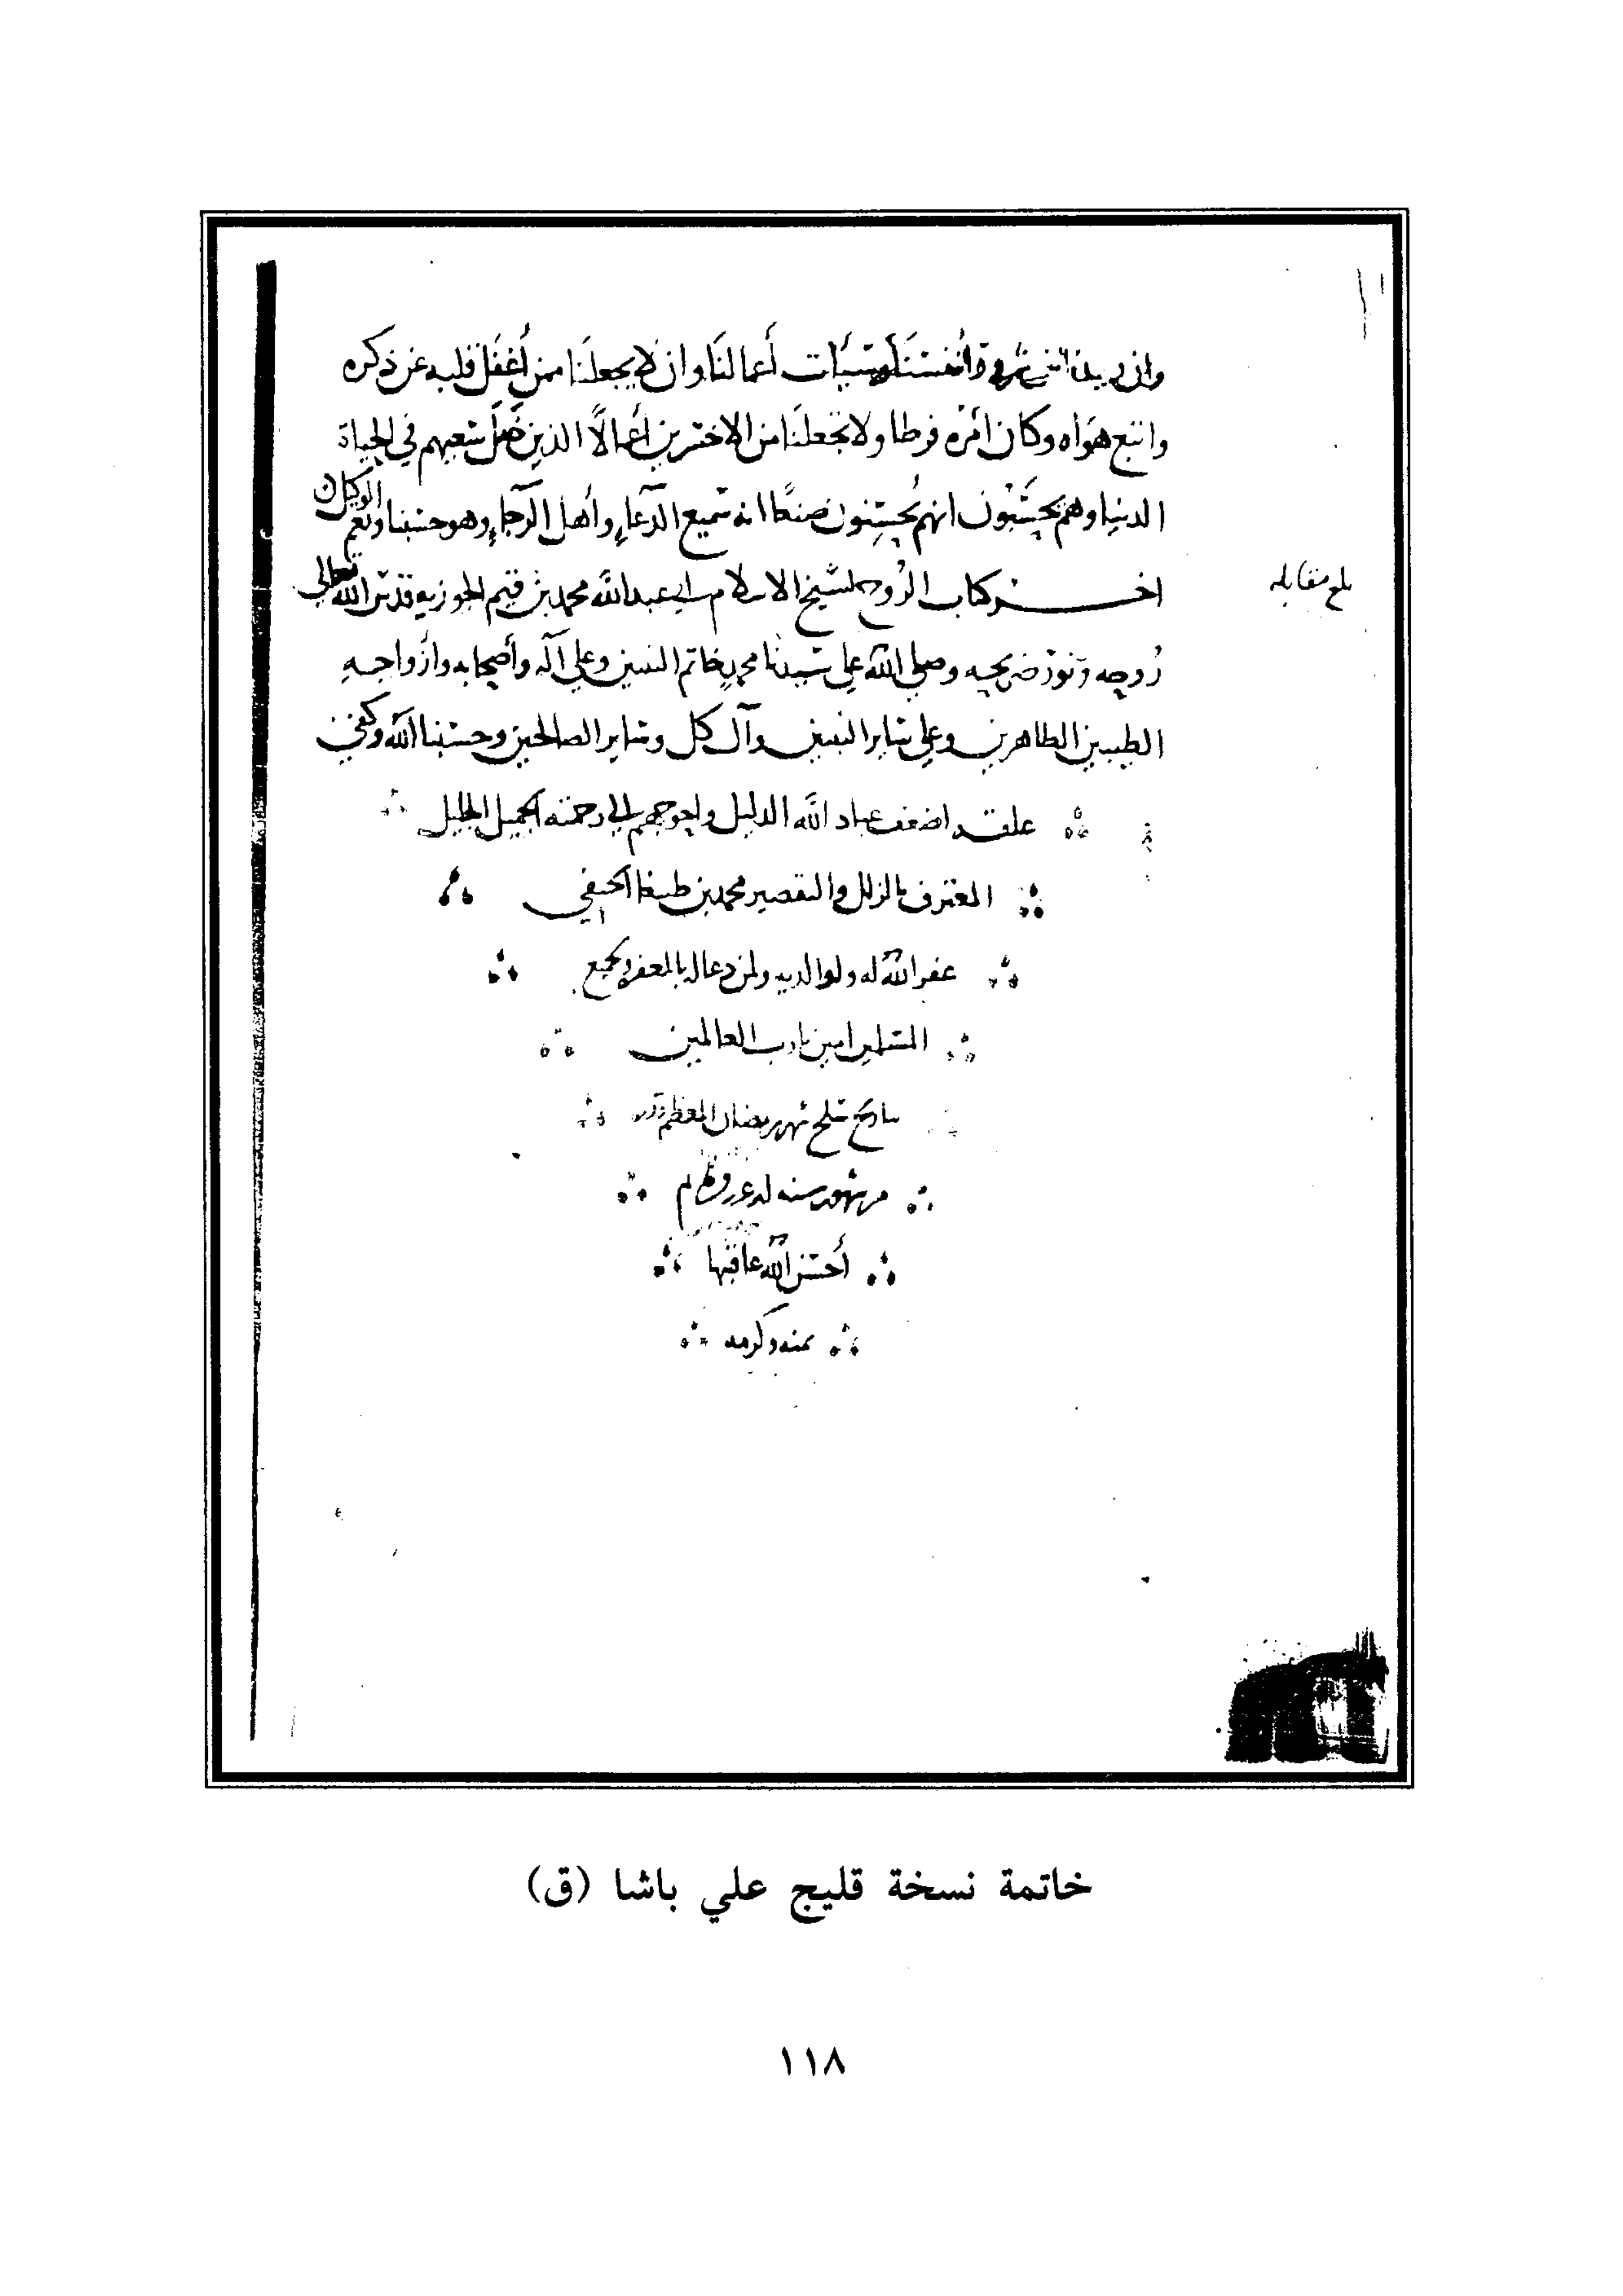 أنفسنا وسيئات أعمالنا وان لا يجعلنا ممن أغفل قلبه عن ذكره
واتبع هواه وكان أمره فرطا ولا تجعلنا من الاخسرين أعمالًا الذين ضل سعيهم في الحياة
الدنيا وهم يحسبون انهم يحسنون صنعًا انه سميع الدعاء وأهل الرجاء وهو حسبنا ونعم الوكيل
اخر كتاب الروح لشيخ الاسلام ابي عبد الله محمد بن قيم الجوزيه قدس الله تعالى
بلغ مقابله
روحه ونور ضريحه وصلى الله على سيدنا محمد خاتم النبيين وعلى آله وأصحابه وازواجه
الطيبين الطاهرين وعلى سائر النبيين وآل كل وسائر الصالحين وحسبنا الله وكفى
علقه اضعف عباد الله الذليل واحوجهم الى رحمته الجميل الجليل
المعترف بالزلل والتقصير محمد بن طيبغا الحنفي
غفر الله له ولوالديه ولمن دعا له بالمغفره ولجميع
المسلمين امين يا رب العالمين
بتاريخ سلخ شهر رمضان المعظم قدره
من شهور سنه
أحسن الله عاقبتها
بمنه وكرمه
خاتمة نسخة قليج علي باشا (ق)
١١٨